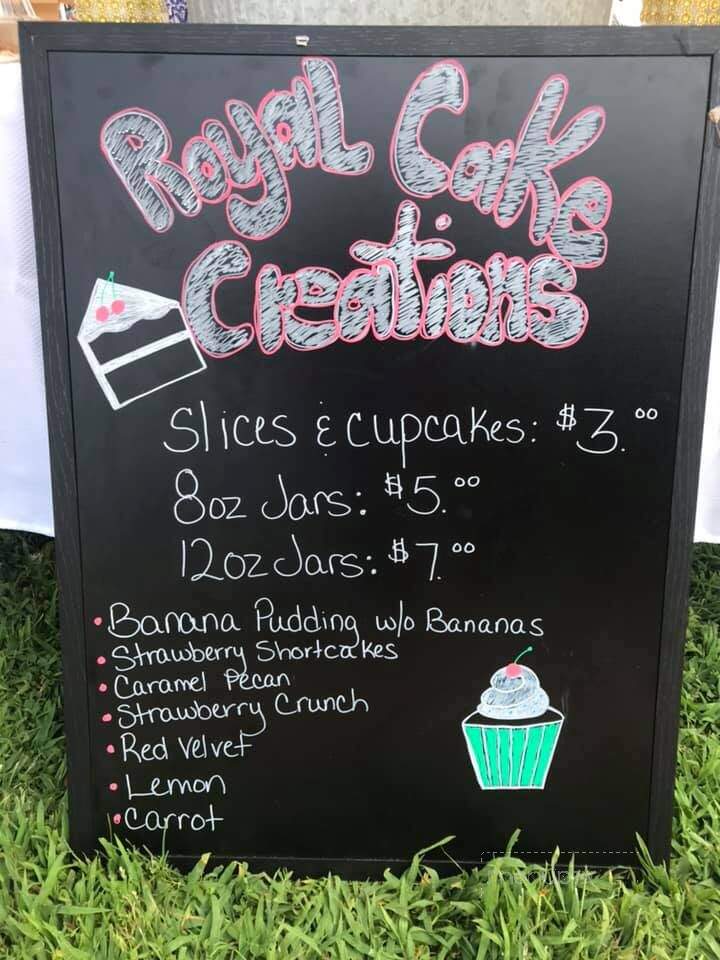 Royal Cake
Creations
Slices & Cupcakes: $3.00
8oz Jars: $5.00
12oz Jars: $7.00
• Banana Pudding w/o Bananas
• Strawberry Shortcakes
• Caramel Pecan
• Strawberry Crunch
• Red Velvet
• Lemon
• Carrot